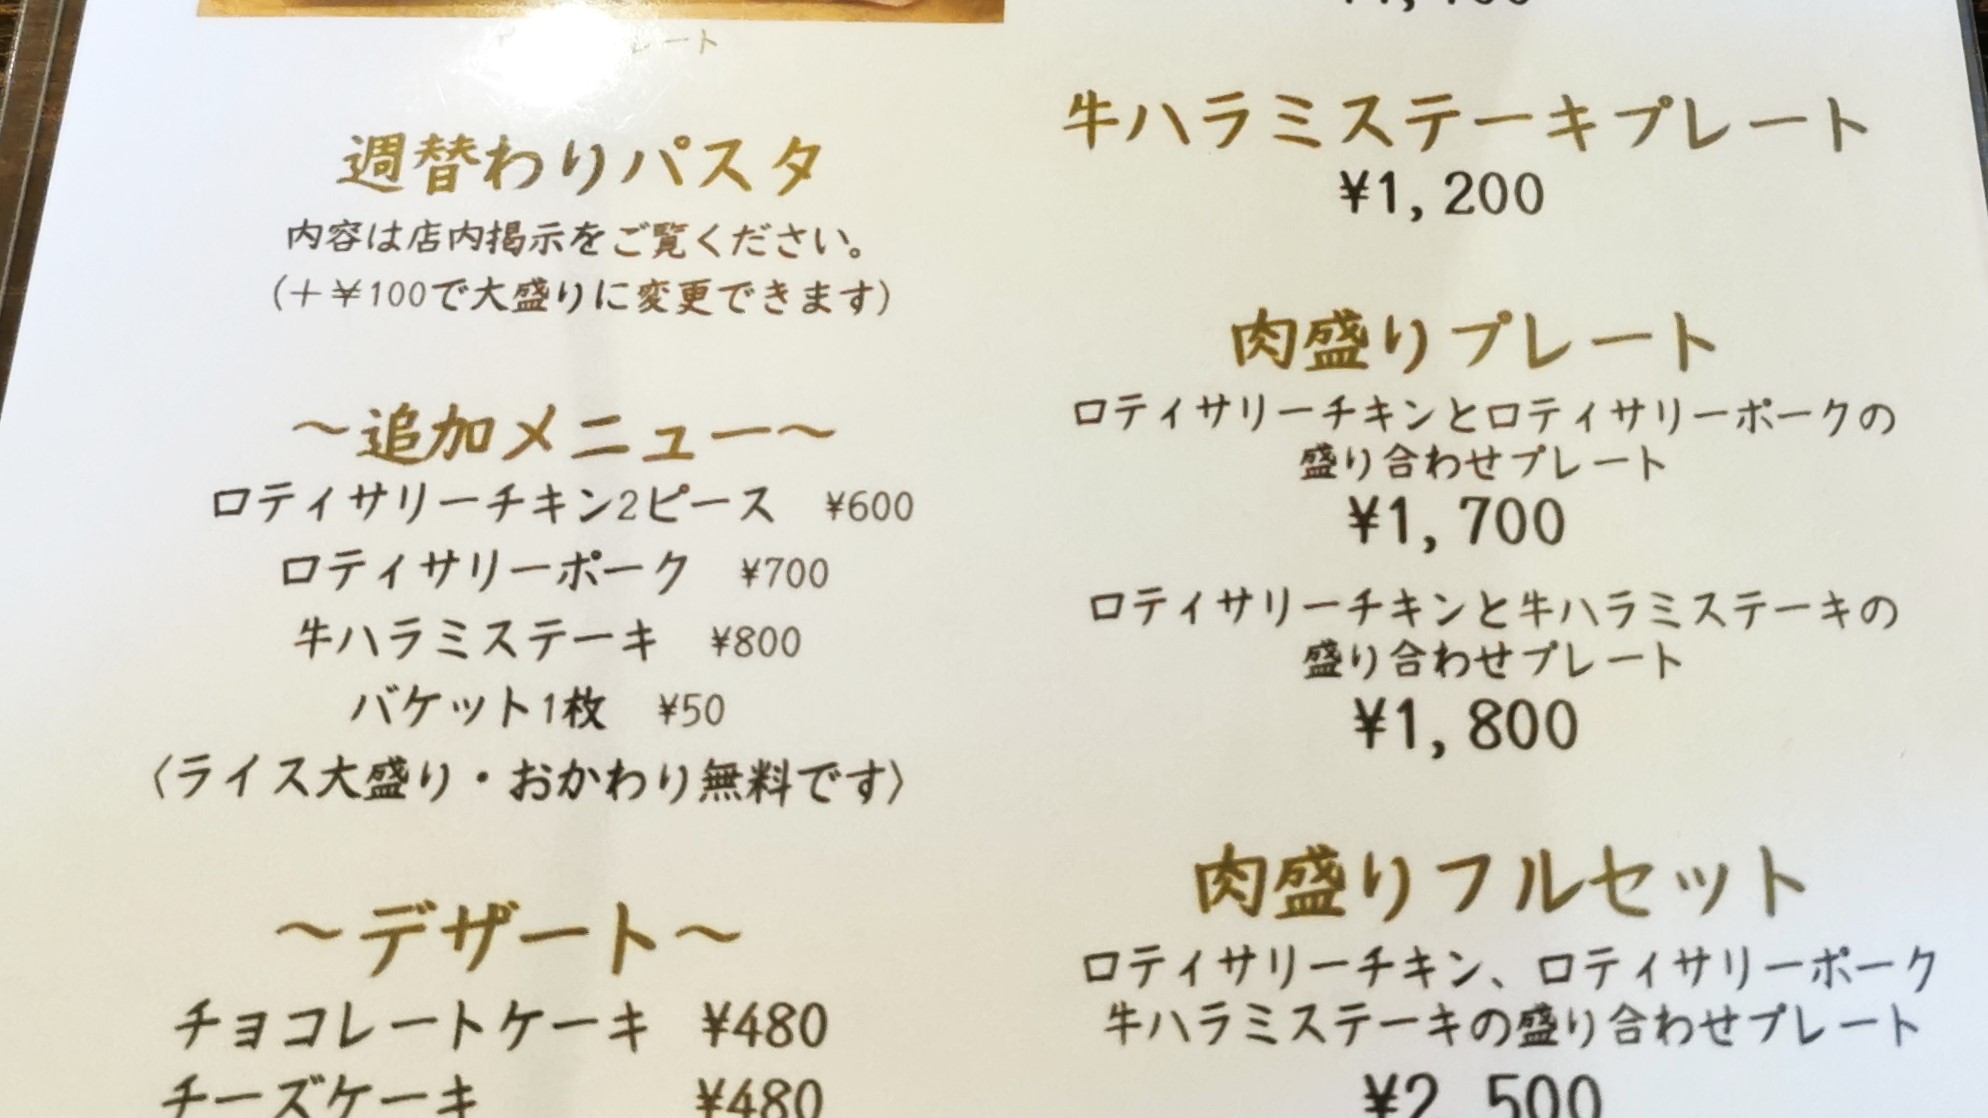 週替わりパスタ
内容は店内掲示をご覧ください。
(+¥100で大盛りに変更できます)
~追加メニュー~
ロティサリーチキン2ピース ¥600
ロティサリーポーク ¥700
牛ハラミステーキ ¥800
バケット1枚 ¥50
〈ライス大盛り・おかわり無料です〉
~デザート~
チョコレートケーキ ¥480
チーズケーキ ¥480
牛ハラミステーキプレート
¥1,200
肉盛りプレート
ロティサリーチキンとロティサリーポークの
盛り合わせプレート
¥1,700
ロティサリーチキンと牛ハラミステーキの
盛り合わせプレート
¥1,800
肉盛りフルセット
ロティサリーチキン、ロティサリーポーク
牛ハラミステーキの盛り合わせプレート
¥2,500